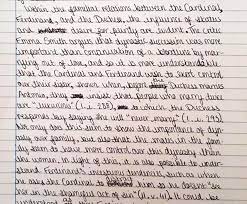 Within the familial relations between the Cardinal,
Ferdinand, and the Duchess, the influence of status
and desire for purity are evident. The critic
Emma Smith argues that dynastic succession was more
important than continuation of a bloodline by marr-
ying out of love, and so it is more understandable
that the Cardinal and Ferdinand wish to exert control
over their sister, share when the Duchess marries
Antonio, they insist that people who marry twice
are "luxurious" (1.i.288), to which the Duchess
responds by saying she will "never marry" (1.i.293)
Not only does this seem to show the importance of dyn-
asty over family, but also that the males in the family
seem to have more control over this dynasty than
the women. In light of this, it is also possible to under-
stand Ferdinand's incestuous tendencies, such as when
he asks the Cardinal to him to the desire "see
her in the shameful act of sin" (II.v.41). It could be